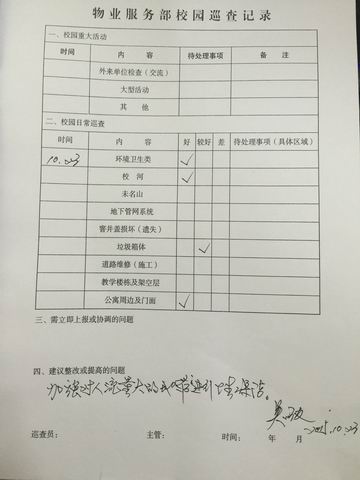 物业服务部校园巡查记录
一、校园重大活动
时间 内 容 待处理事项 备 注
外来单位检查（交流）
大型活动
其 他
二、校园日常巡查
时间 内 容 好 较好 差 待处理事项（具体区域）
10.23 环境卫生类 ✓
校 河 ✓
未名山
地下管网系统
窨井盖损坏（遗失）
垃圾箱体 ✓
道路维修（施工）
教学楼栋及架空层
公寓周边及门面 ✓
三、需立即上报或协调的问题
四、建议整改或提高的问题
加强对人流量大的地带进行 保洁。
2015.10.23
巡查员： 主管： 时间： 年 月